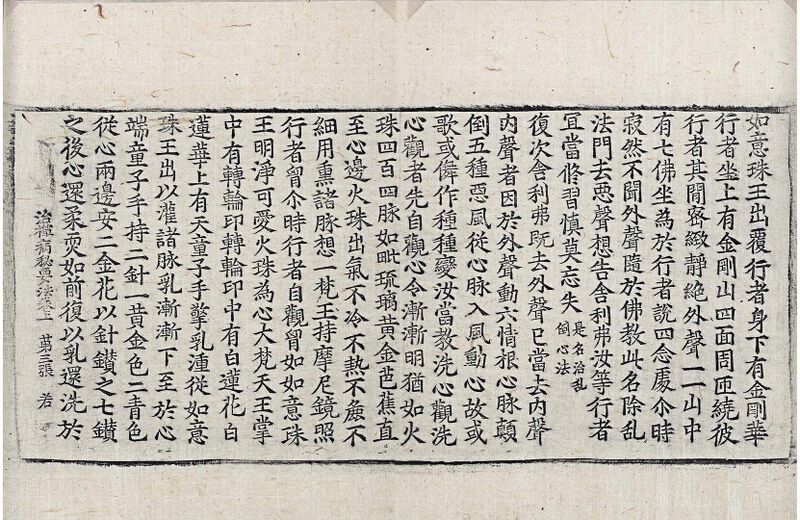 如意珠王出覆行者身下有金剛華
行者坐上有金剛山四面周匝繞彼
行者其閒密緻靜絕外聲一一山中
有七佛坐為於行者說四念處尒時
寂然不聞外聲隨於佛教此名除乱
法門去悪聲想告舍利弗汝等行者
冝當修習慎莫忘失是名治乱倒心法
復次舍利弗既去外聲已當去内聲
内聲者因於外聲動六情根心脉顛
倒五種惡風從心脉入風動心故或
歌或儛作種種變汝當教洗心觀洗
心觀者先自觀心令漸漸明猶如火
珠四百四脉如毗琉璃黄金芭蕉直
至心邊火珠出氣不冷不熱不麁不
細用熏諸脉想一梵王持摩尼鏡照
行者胷尒時行者自觀胷如如意珠
王明淨可愛火珠為心大梵天王掌
中有轉輪印轉輪印中有白蓮花白
蓮華上有天童子手擎乳湩從如意
珠王出以灌諸脉乳漸漸下至於心
端童子手持二針一黄金色二青色
從心兩邊安二金花以針鑽之七鑽
之後心還柔耎如前復以乳還洗於
治禪病秘要法卷上 苐三張 若